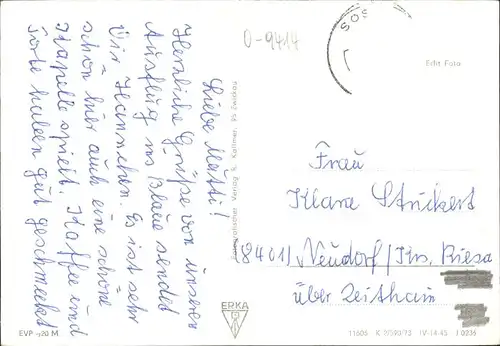 Liebe Mutti!
Herzliche Grüße von unseren
Ausflug ins Blaue sendet
Dir Hannchen. Es ist sehr
schön hier auch eine schöne
Kapelle spielt. Kaffee und
Torte haben gut geschmeckt
0-9414
SOS
Echt Foto
Verlag R. Kallmer, 95 Zwickau
Frau
Klara Stuckert
(8401) Neudorf/Krs. Riesa
über Zeithain
ERKA
EVP -,20 M
11606 K 2/590/73 IV-14-45 J 0236